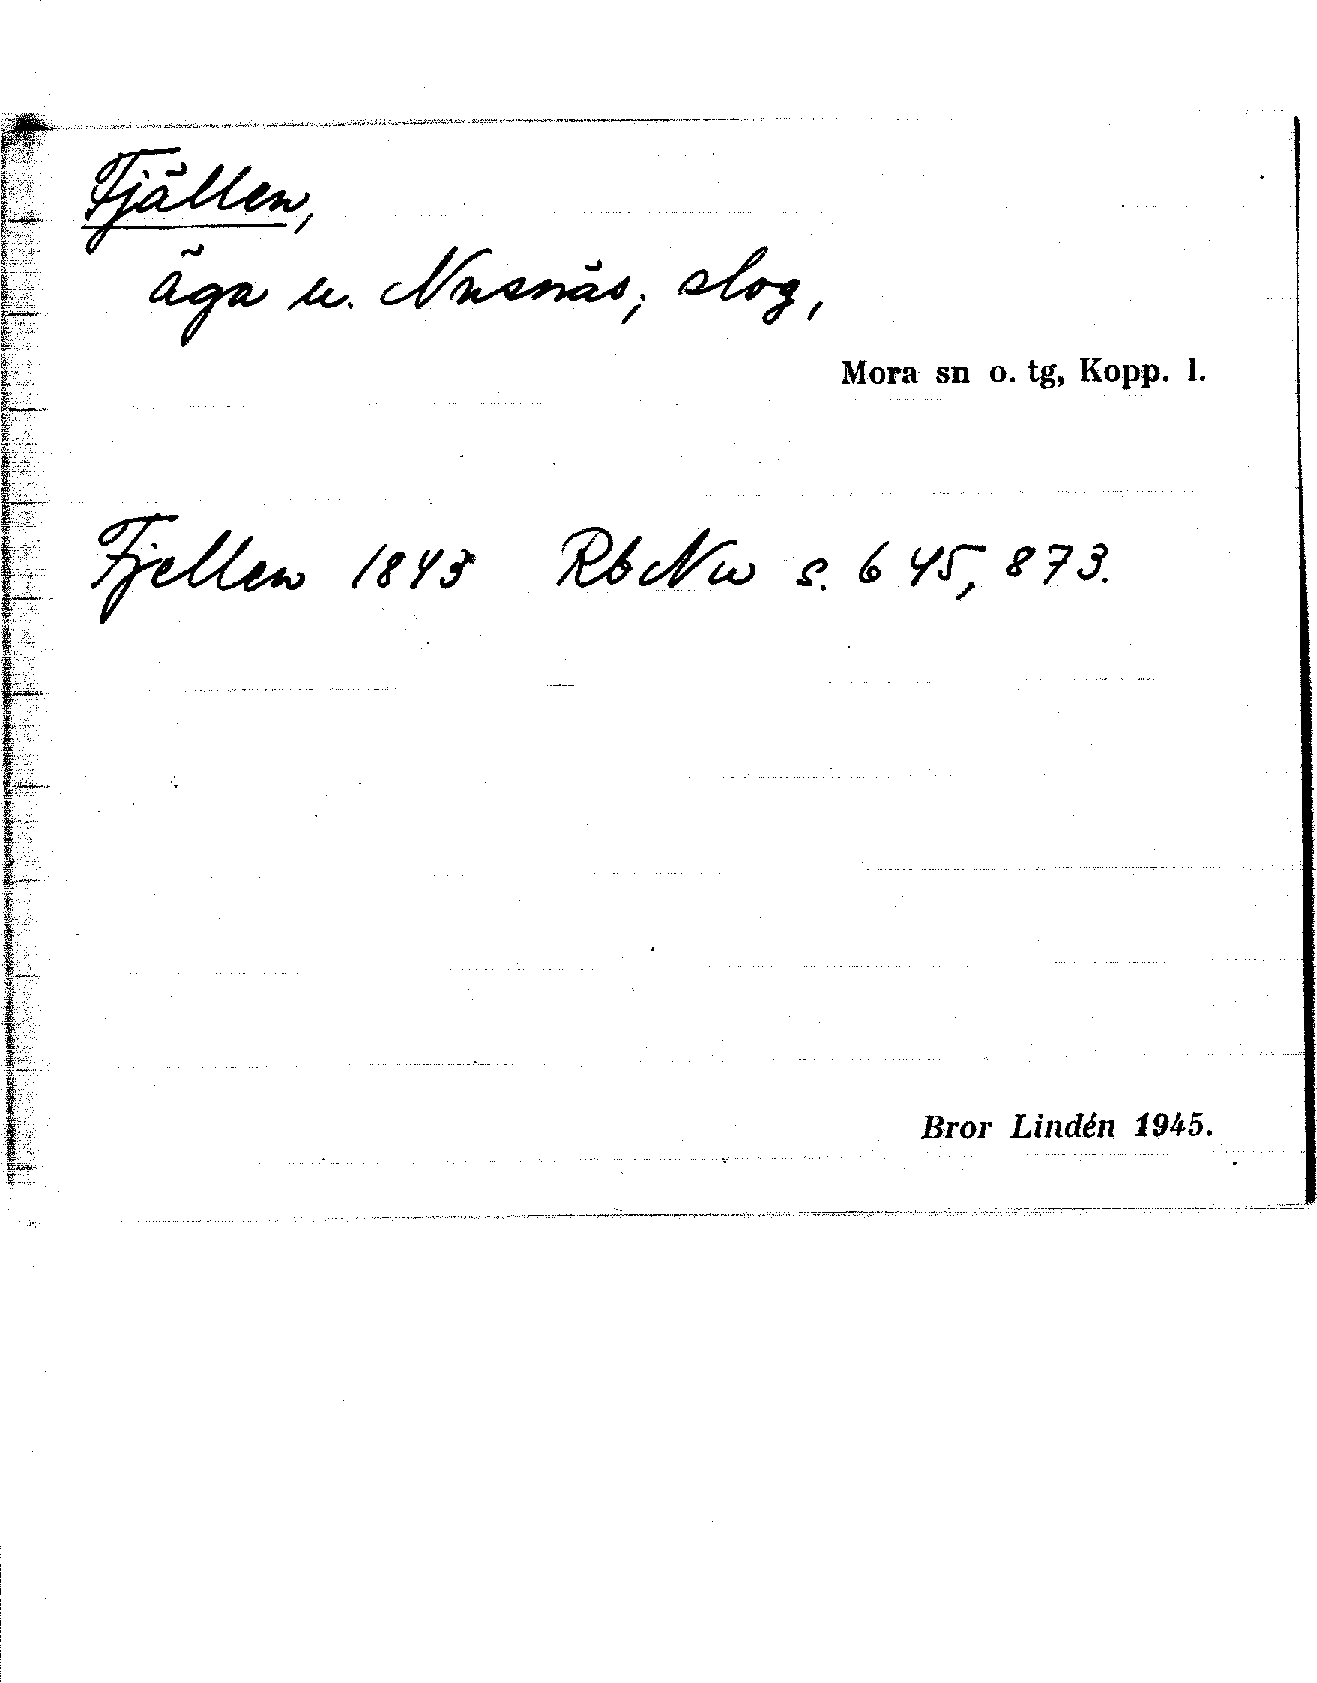 Fjällen,
äga u. Nusnäs, slog,
Mora sn o. tg, Kopp. l.
Fjellen 1843 RbNu s. 645, 873.
Bror Lindén 1945.